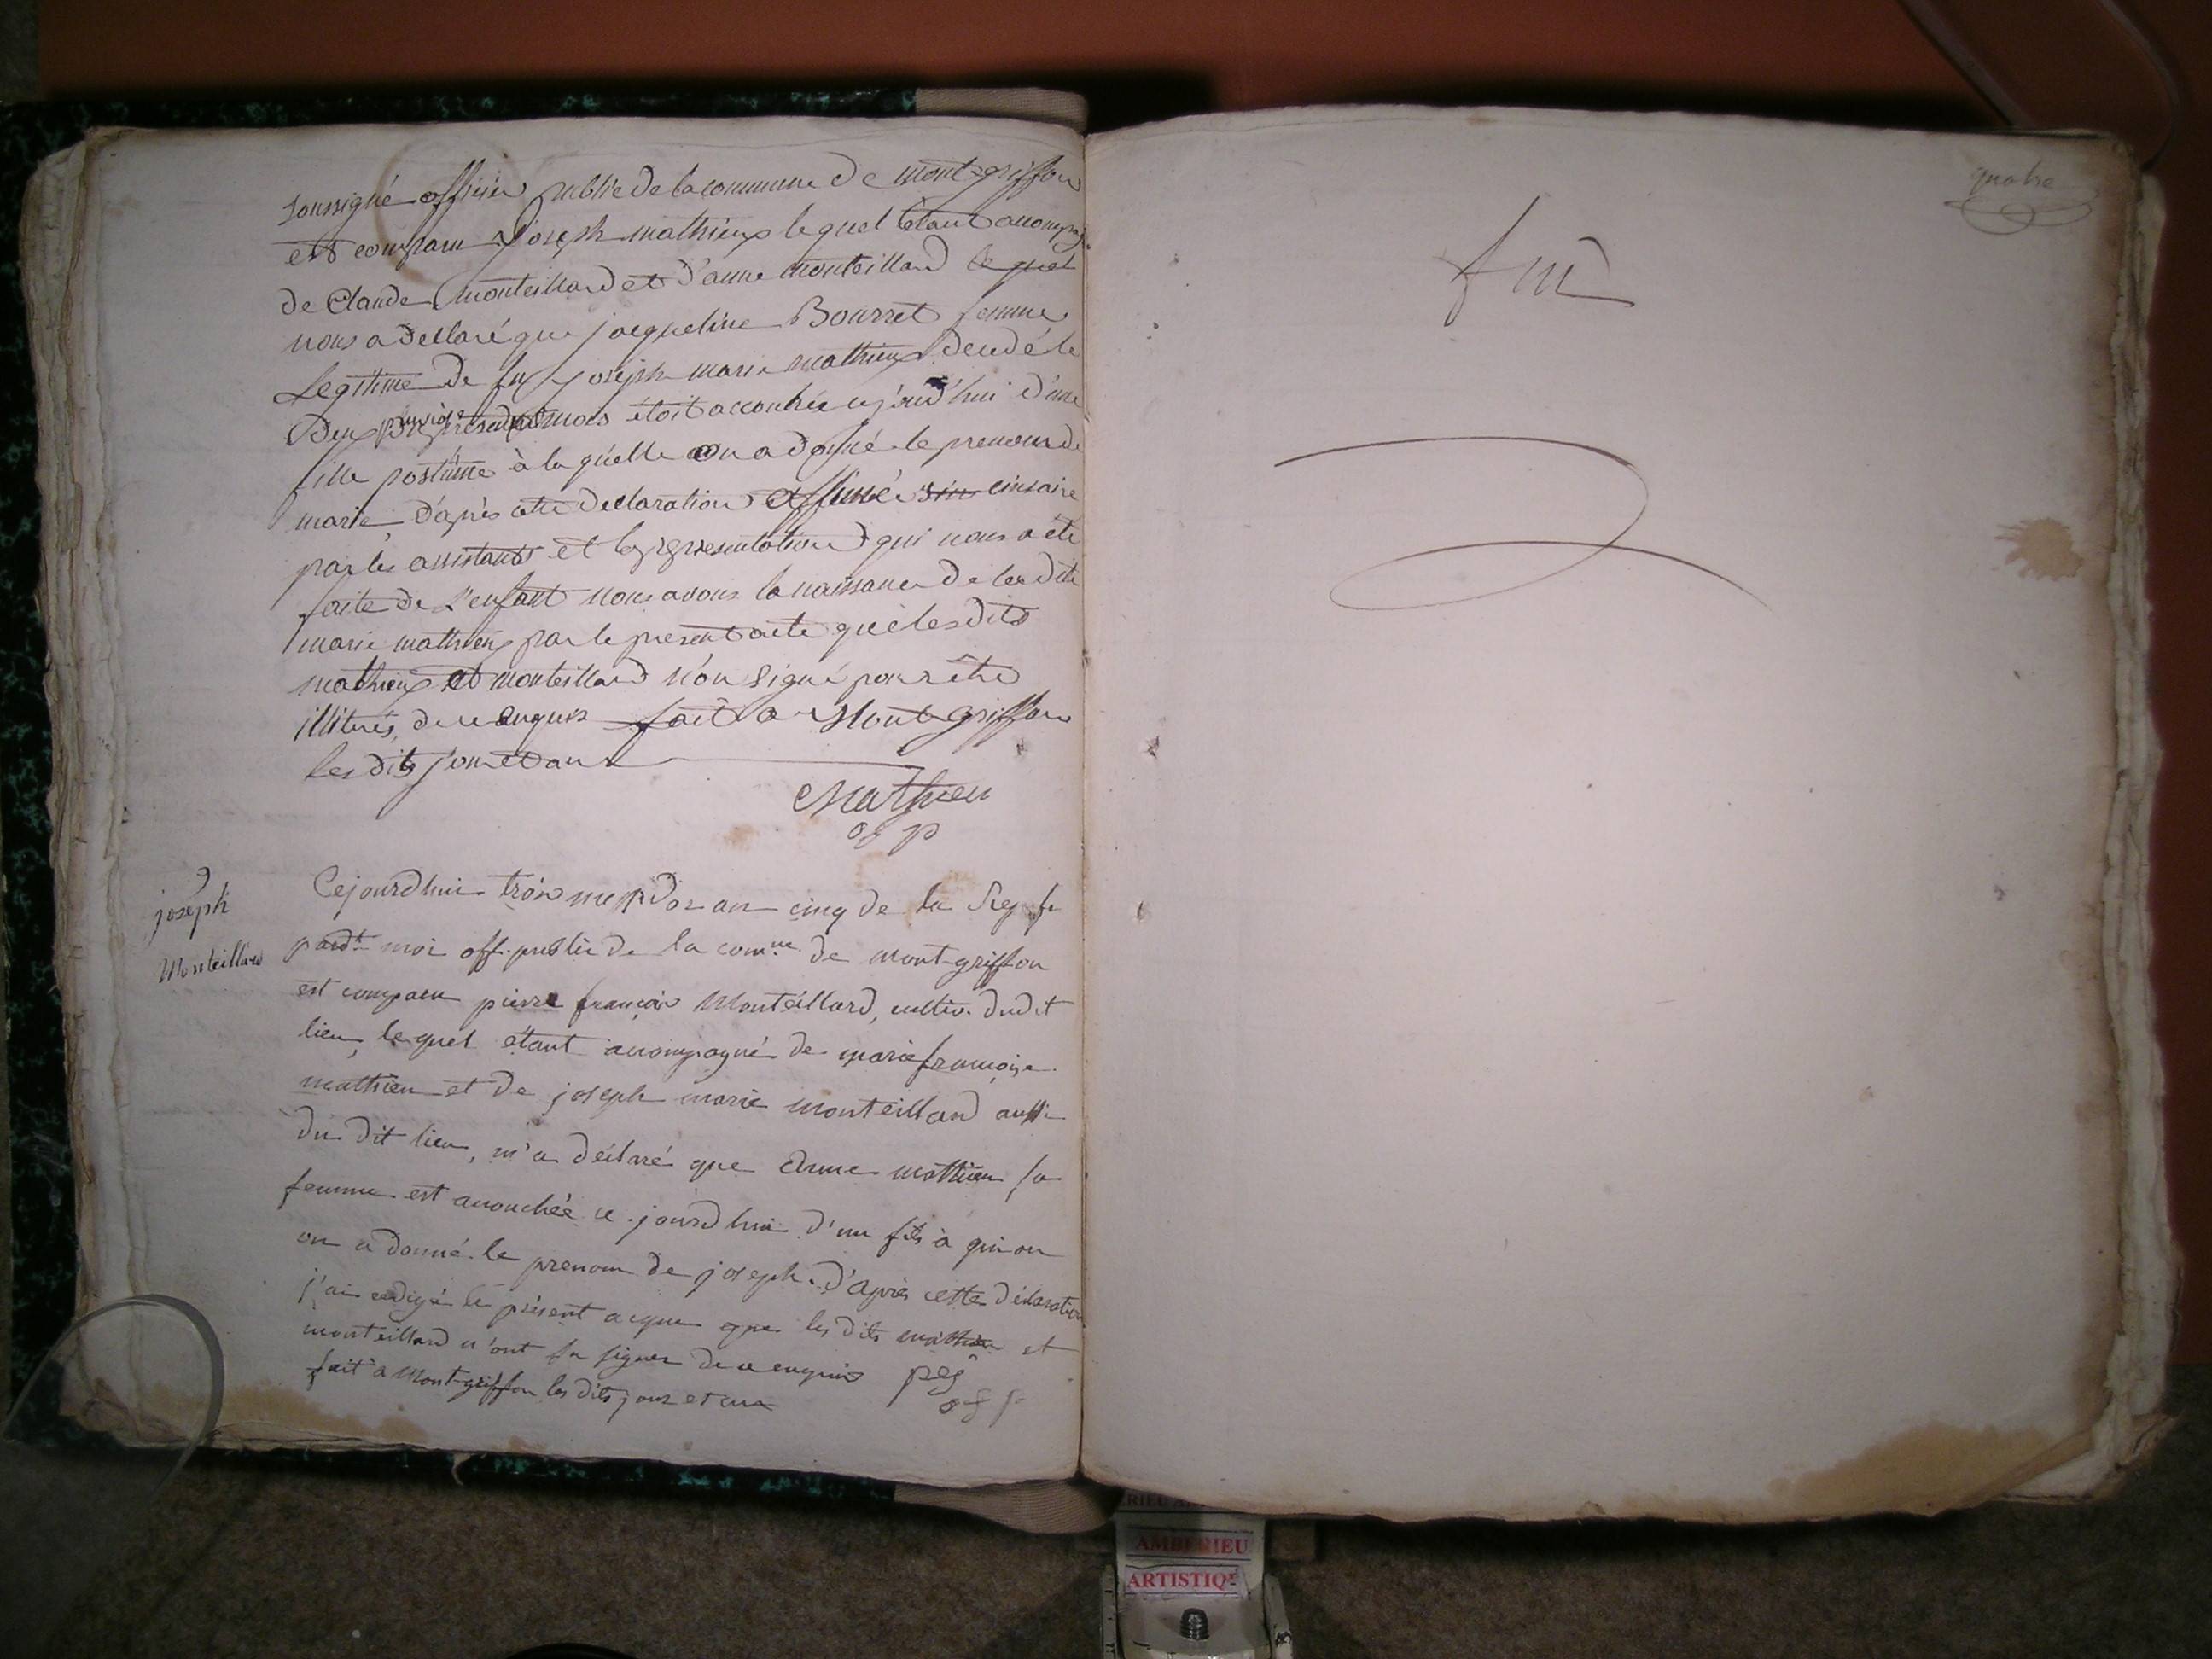 soussigné officier public de la commune de mont-griffon
est comparu joseph mathieux lequel étant accompag
de Claude monteillard et d'anne monteillard le quel
nous a declaré que jacqueline Bourret femme
Legitime de feu joseph marie mathieux decedé le
Deux mois étoit accouchée cejourd'hui d'une
fille postume à la quelle on a donné le prenom de
marie, d'après cette declaration sincaire
par les assistants et la presentation qui nous a été
faite de L'enfant nous avons la naissance de la dite
marie mathieux par le present acte que les dits
mathieux et monteillard n'on signé pour être
illitérés, de ce enquis fait a Mont-griffon
les dits jour et an
Mathieu
of p
joseph
Monteillard
Cejourd'hui trois messidor an cinq de la Rep. fr
pardt moi off. public de la comne de mont-griffon
est comparu pierre françois Monteillard, cultiv. dudit
lieu, lequel étant accompagné de marie françoise
mathieu et de joseph marie monteillard aussi
du dit lieu, m'a déclaré que Anne mathieu sa
femme est accouchée ce jourd'hui d'un fils à qui on
on a donné le prenom de joseph. d'après cette déclaration
j'ai redigé le présent acque que les dits mathieu et
monteillard n'ont su signer de ce enquis
fait à Mont-griffon les dits jour et an
of p
quatre
fin
AMBERIEU
ARTISTIQ